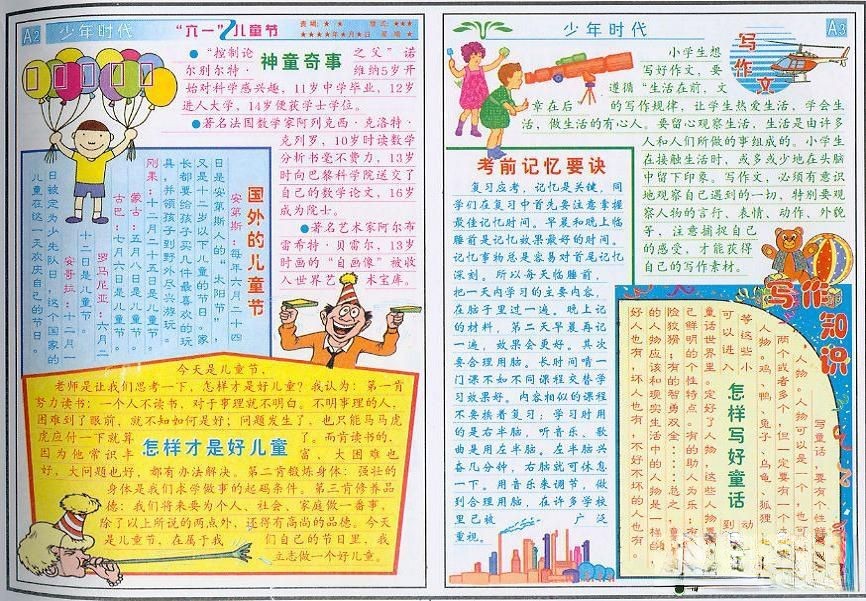 A2 少年时代 “六一”儿童节
神童奇事
●“控制论 之父”诺
尔别尔特· 维纳5岁开
始对科学感兴趣，11岁中学毕业，12岁
进人大学，14岁便获学士学位。
●著名法国数学家阿列克西·克洛特·
克列罗，10岁时读数学
分析书毫不费力，13岁
时向巴黎科学院送交了
自己的数学论文，16岁
成为院士。
●著名艺术家阿尔布
雷希特·贝雷尔，13岁
时画的“自画像”被收
人世界艺 术宝库。
国外的儿童节
安第斯：每年六月二十四
日是安第斯人的“太阳节”，
又是十二岁以下儿童的节日。家
长都要给孩子买几件最喜欢的玩
具，并领孩子到野外尽兴游玩。
刚果：十二月二十五日是儿童节。
蒙古：五月八日是儿童节。
古巴：七月六日是儿童节。
罗马尼亚：六月二
十二日是儿童节。
安哥拉：十二月一
日被定为少先队日，这个国家的
儿童在这一天欢庆自己的节日。
今天是儿童节，
老师是让我们思考一下，怎样才是好儿童？我认为：第一肯
努力读书：一个人不读书，对于事理就不明白。不明事理的人，
困难到了眼前，就不知如何是好；问题发生了，也只能马马虎
虎应付一下就算 了。而肯读书的，
怎样才是好儿童
因为他常识丰 富、大困难也
好，大问题也好，都有办法解决。第二肯锻炼身体：强壮的
身体是我们求学做事的起码条件。第三肯修养品
德：我们将来要为个人、社会、家庭做一番事，
除了以上所说的两点外，还得有高尚的品德。今天
是儿童节，在属于我 们自己的节日里，我
立志做一个好儿童。
少年时代 A3
写作文
小学生想
写好作文，要
遵循“生活在前，文
章在后 的写作规律，让学生热爱生活，学会生
活，做生活的有心人。要留心观察生活，生活是由许多
人和人们所做的事组成的。小学生
在接触生活时，或多或少地在头脑
中留下印象。写作文，必须有意识
地观察自己遇到的一切，特别要观
察人物的言行、表情、动作、外貌
等，注意捕捉自己
的感受，才能获得
自己的写作素材。
考前记忆要诀
复习应考，记忆是关键，同
学们在复习中首先要注意掌握
最佳记忆时间。早晨和晚上临
睡前是记忆效果最好的时间。
记忆事物总是容易对首尾记忆
深刻。所以每天临睡前，
把一天内学习的主要内容，
在脑子里过一遍。晚上记
的材料，第二天早晨再记
一遍，效果会更好。其次
要合理用脑。长时间啃一
门课不如不同课程交替学
习效果好。内容相似的课程
不要挨着复习；学习时用
的是右半脑，听音乐、歌
曲是用左半脑。左半脑兴
奋几分钟，右脑就可休息
一下。用音乐来调节，做
到合理用脑，在许多学校
里已被 广泛
重视。
写作知识
怎样写好童话
写童话，要有个性
人物。人物可以是一个，也可
两个或者多个，但一定要有一个
人物。鸡、鸭、兔子、乌龟、狐狸
等这些小 动
可以进入 到
童话世界里。定好了人物，这些人物要
己鲜明的个性特点。有的助人为乐；有
险狡猾；有的智勇双全……总之，童
的人物应该和现实生活中的人物是一样的，
好人也有，坏人也有，不好不坏的人也有。